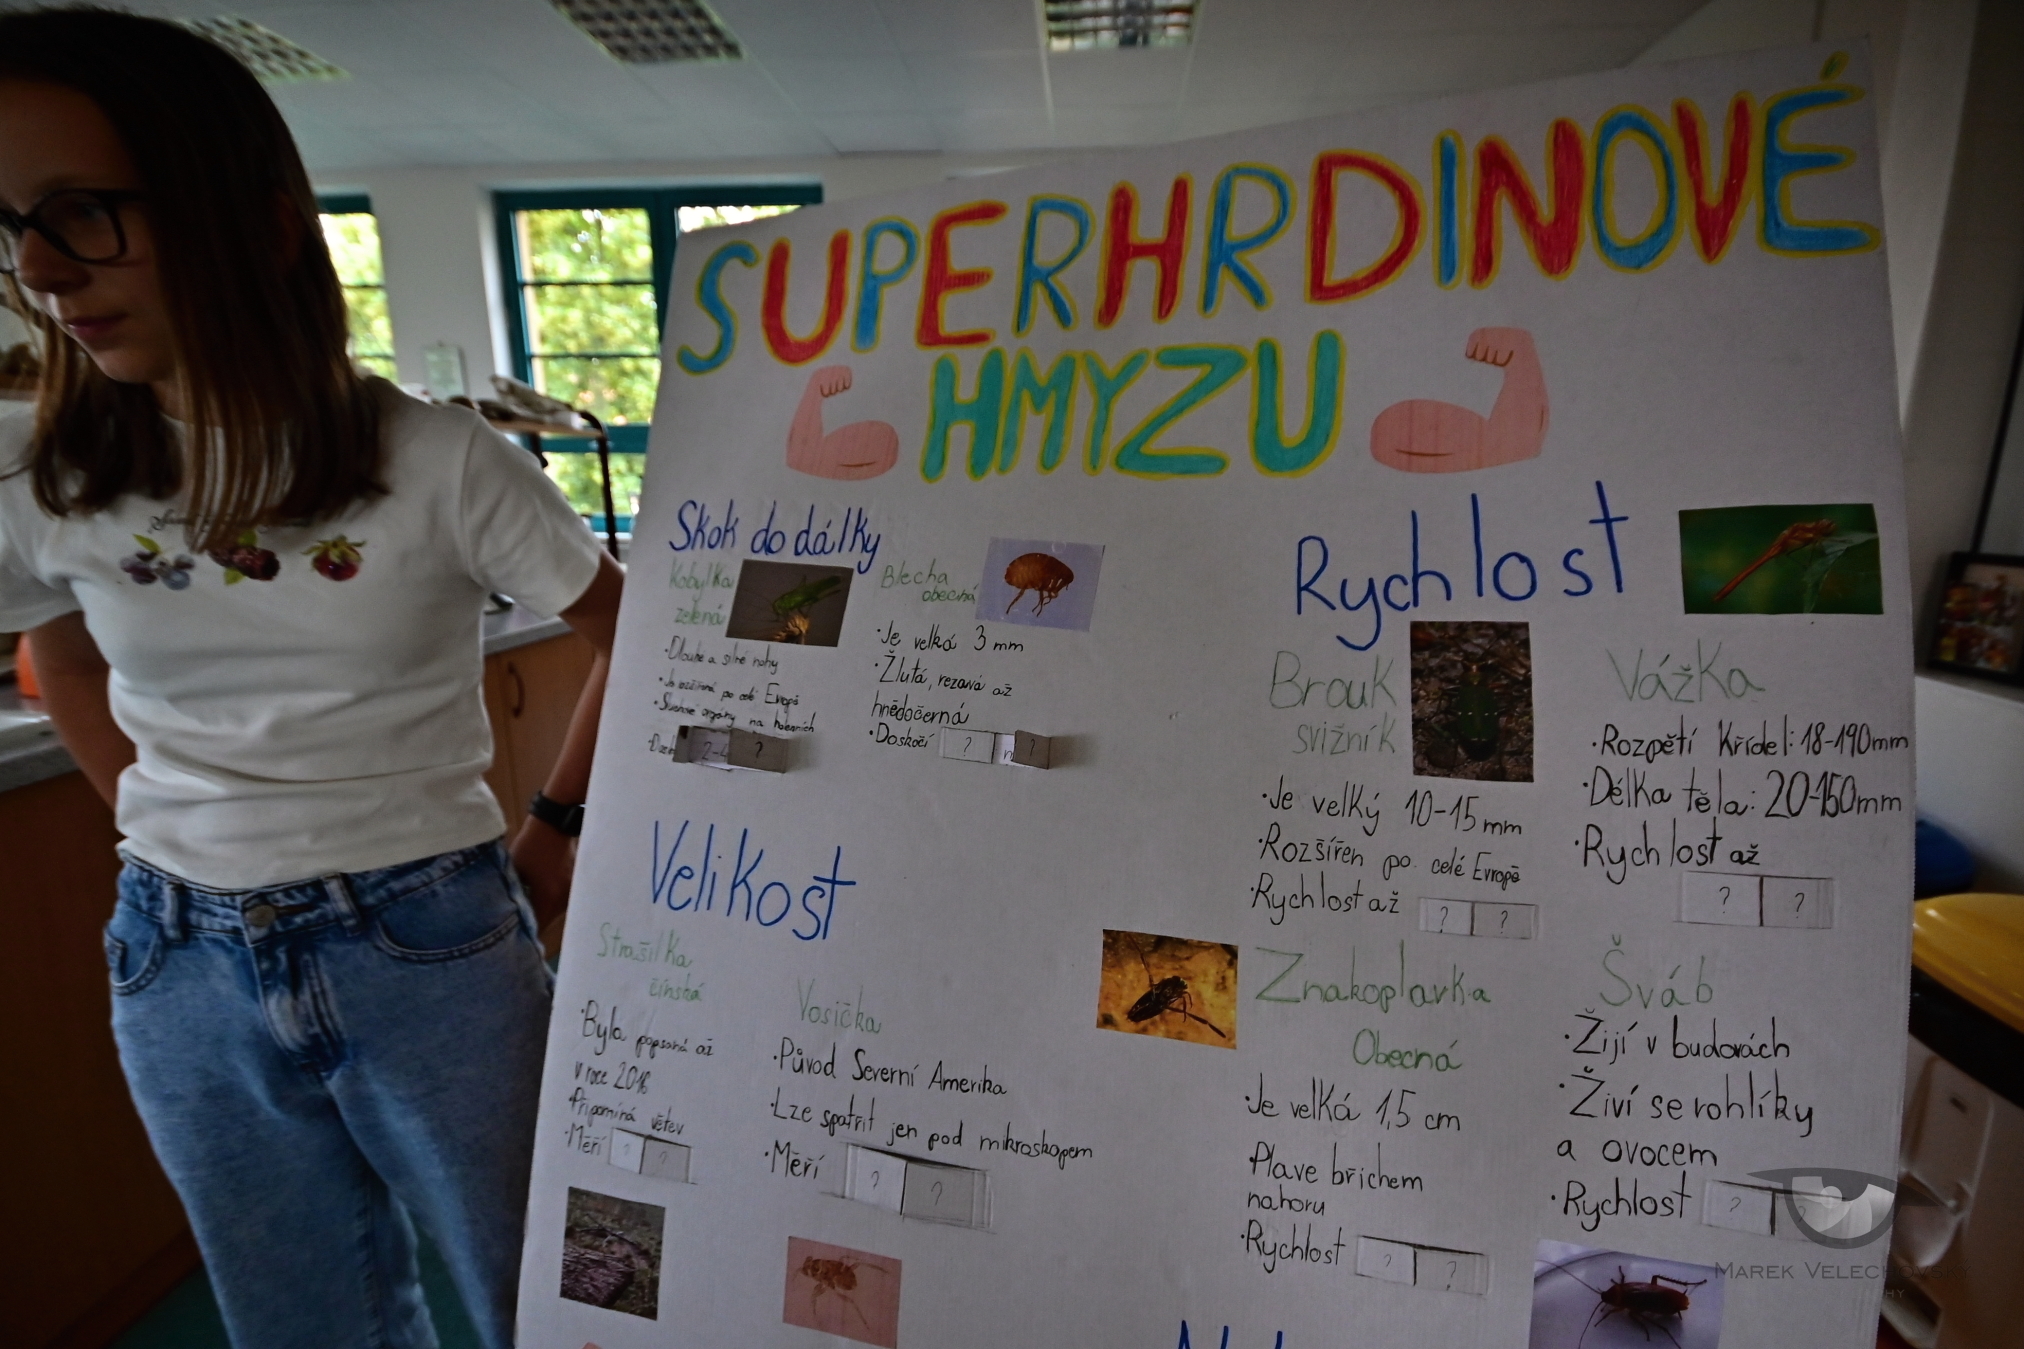 SUPERHRDINOVÉ
HMYZU
Skok do dálky
Kobylka
zelená
• Dlouhé a silné nohy
• Je rozšířená po celé Evropě
• Sluchové orgány na holeních
2-4 ?
Blecha
obecná
• Je velká 3 mm
• Žlutá, rezavá až
hnědočerná
• Doskočí ? ?
Velikost
Strašilka
čínská
• Byla popsaná až
v roce 2016
• Připomíná větev
• Měří ? ?
Vosička
• Původ Severní Amerika
• Lze spatřit jen pod mikroskopem
• Měří ? ?
Rychlost
Brouk
svižník
• Je velký 10-15 mm
• Rozšířen po celé Evropě
• Rychlost až ? ?
Vážka
• Rozpětí křídel: 18-190mm
• Délka těla: 20-150mm
• Rychlost až
? ?
Znakoplavka
Obecná
• Je velká 1,5 cm
• Plave břichem
nahoru
• Rychlost ? ?
Šváb
• Žijí v budovách
• Živí se rohlíky
a ovocem
• Rychlost ? ?
MAREK VELECHOVSKÝ